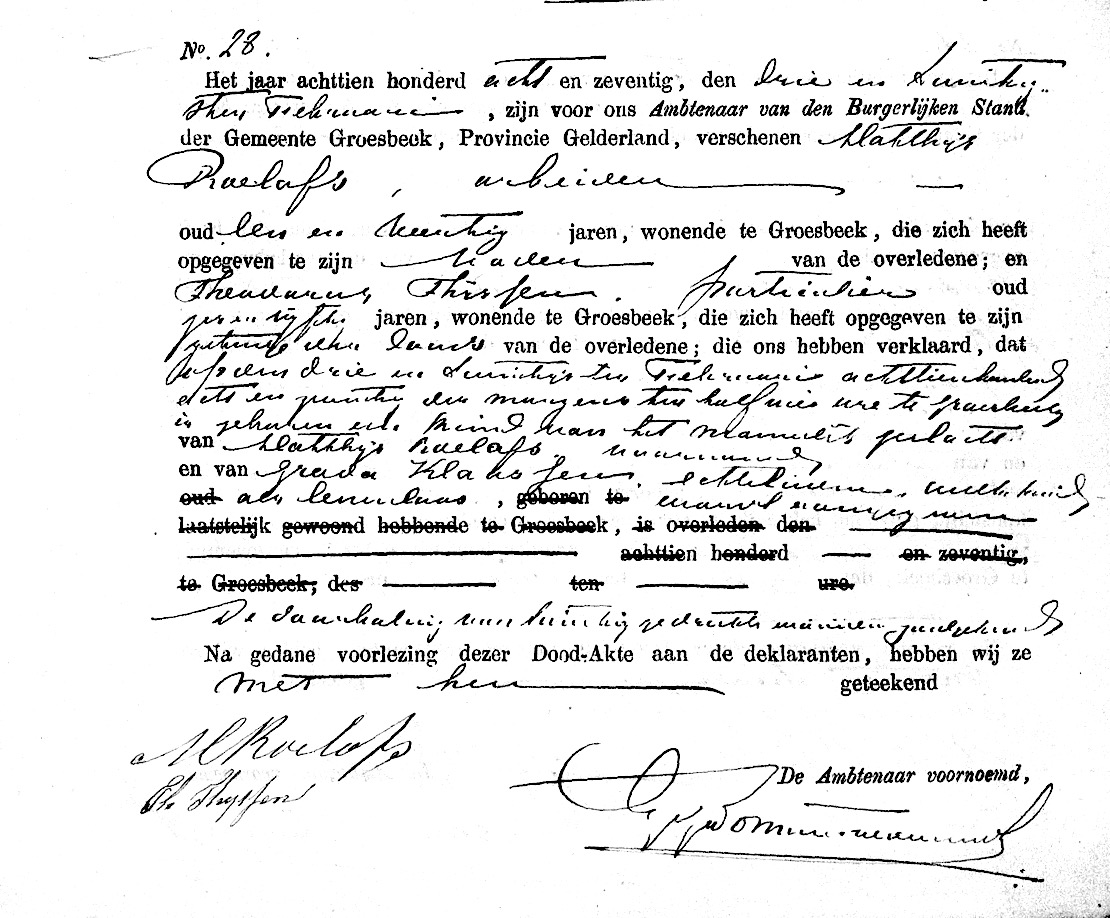 No. 28.
Het jaar achttien honderd acht en zeventig, den drie en twintig-
sten Februarij, zijn voor ons Ambtenaar van den Burgerlijken Stand.
der Gemeente Groesbeek, Provincie Gelderland, verschenen Matthijs
Roelofs, arbeider
oud een en veertig jaren, wonende te Groesbeek, die zich heeft
opgegeven te zijn Vader van de overledene; en
Theodorus Thijssen, particulier oud
jaren, wonende te Groesbeek, die zich heeft opgegeven te zijn
van de overledene; die ons hebben verklaard, dat
drie en twintigsten Februarij achttienhonderd
acht en zeventig des morgens ten half ure te Groesbeek
is geboren een kind van het mannelijk geslacht
van Matthijs Roelofs voornoemd
en van Grada Klaassen, echtelieden, welk kind
oud als levenloos, geboren te
laatstelijk gewoond hebbende te Groesbeek, is overleden den
achttien honderd en zeventig,
te Groesbeek, des ten ure.
De doorhaling van twintig gedrukte woorden goedgekeurd
Na gedane voorlezing dezer Dood-Akte aan de deklaranten, hebben wij ze
met hen geteekend
M Roelofs
Th Thijssen
De Ambtenaar voornoemd,